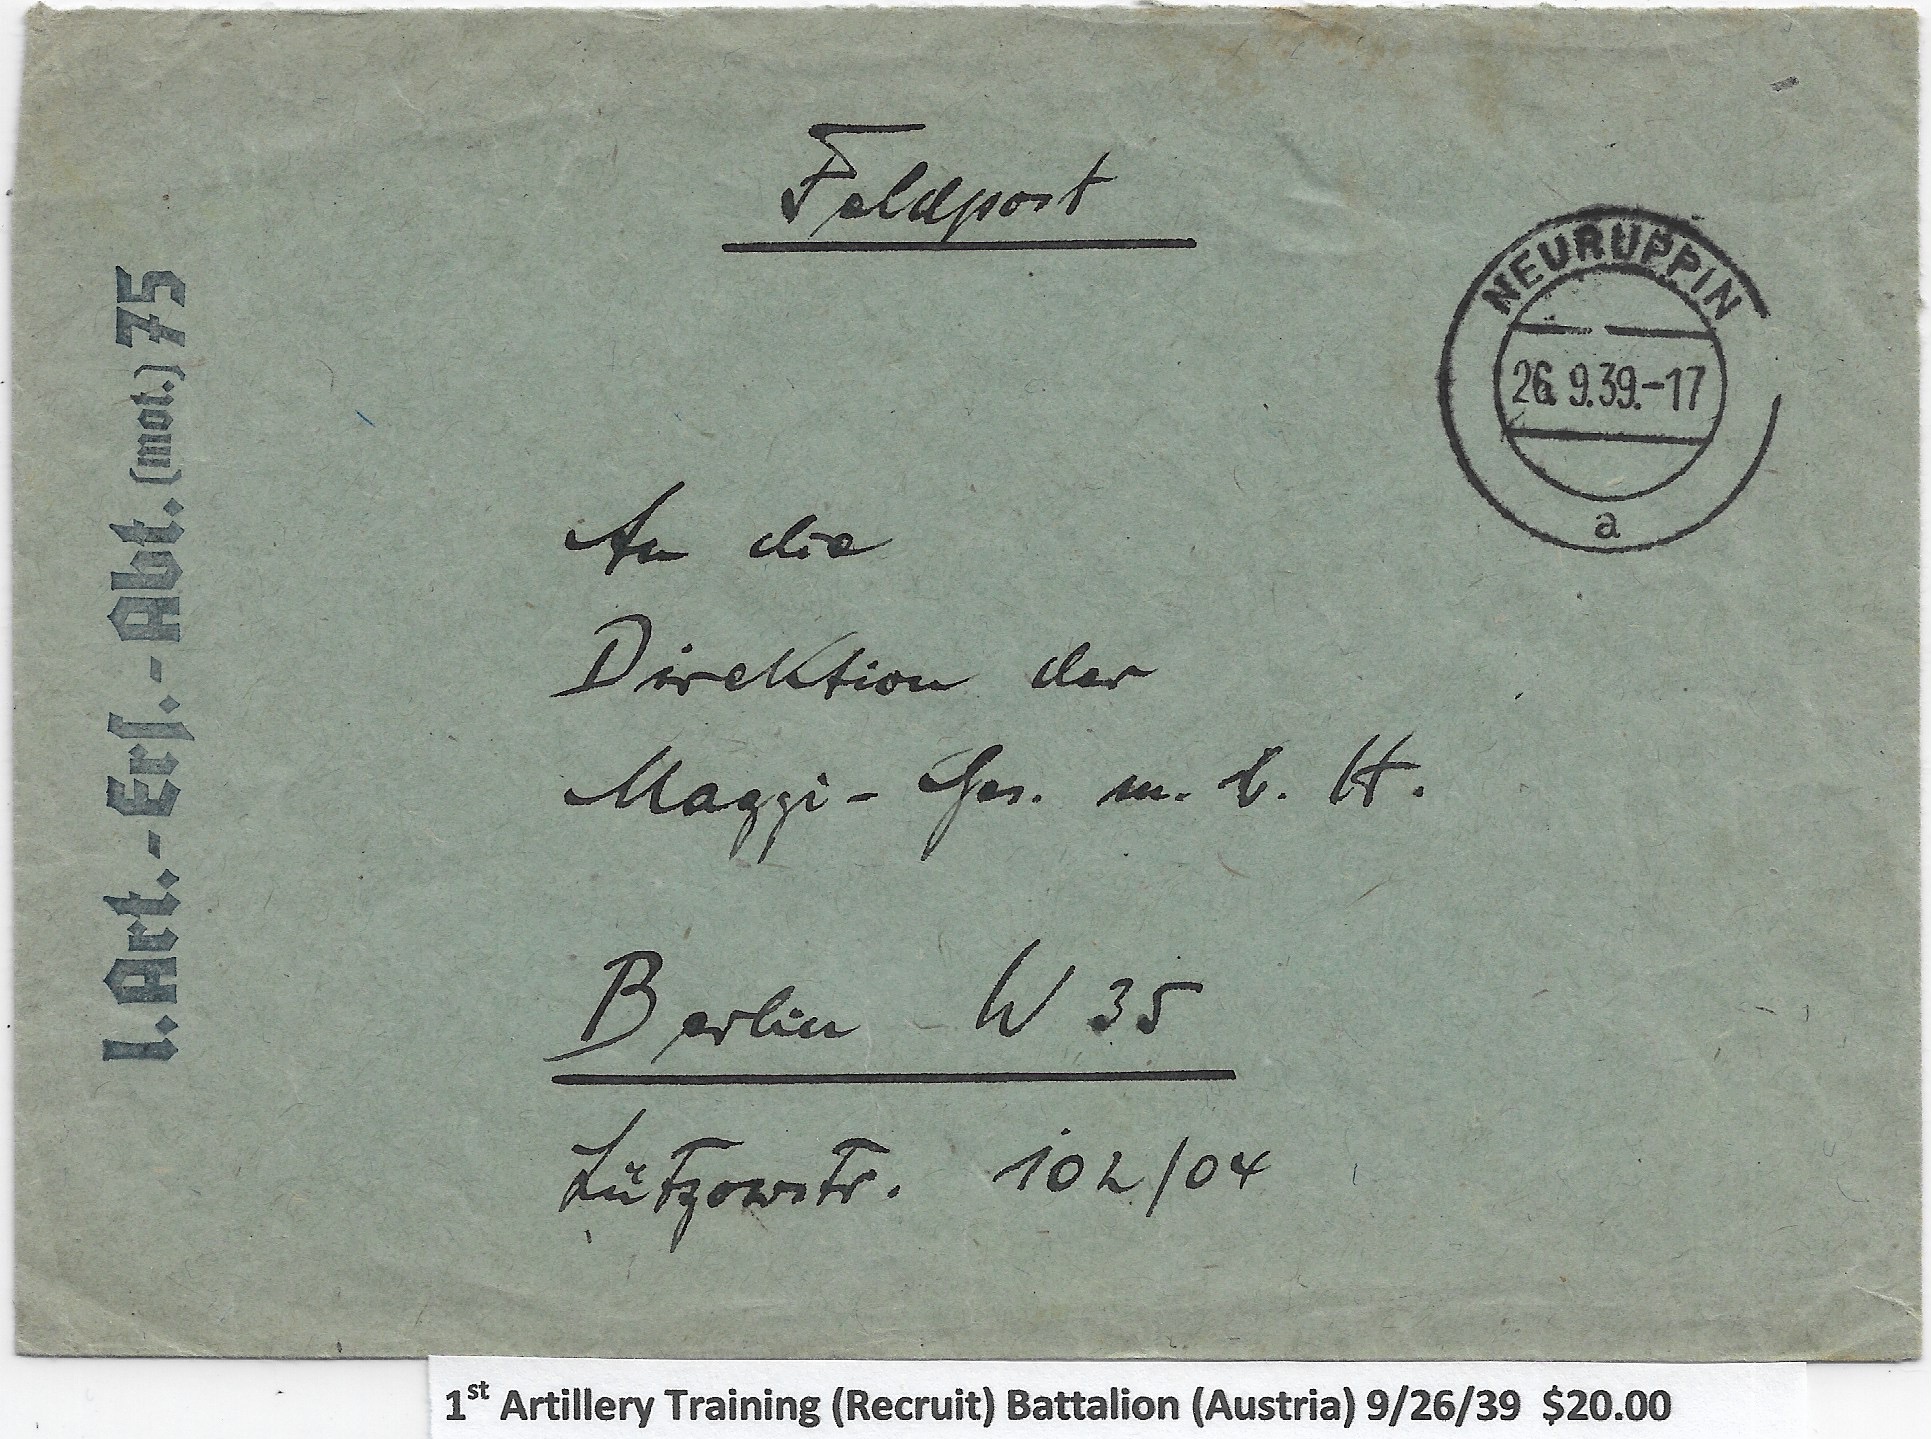 Feldpost
NEURUPPIN
26.9.39.-17
a
I. Art.-Ers.-Abt. (mot.) 75
An die
Direktion der
Maggi - Ges. m. b. H.
Berlin W 35
Lützowstr. 102/04
1st Artillery Training (Recruit) Battalion (Austria) 9/26/39 $20.00